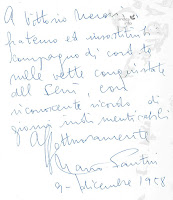 A Vittorio Meroni
fraterno ed insostituibile
compagno di cordata
nelle vette conquistate
del Seni, con
riconoscente ricordo di
giorni indimenticabili
Affettuosamente
Mario Fantin
9 - dicembre 1958